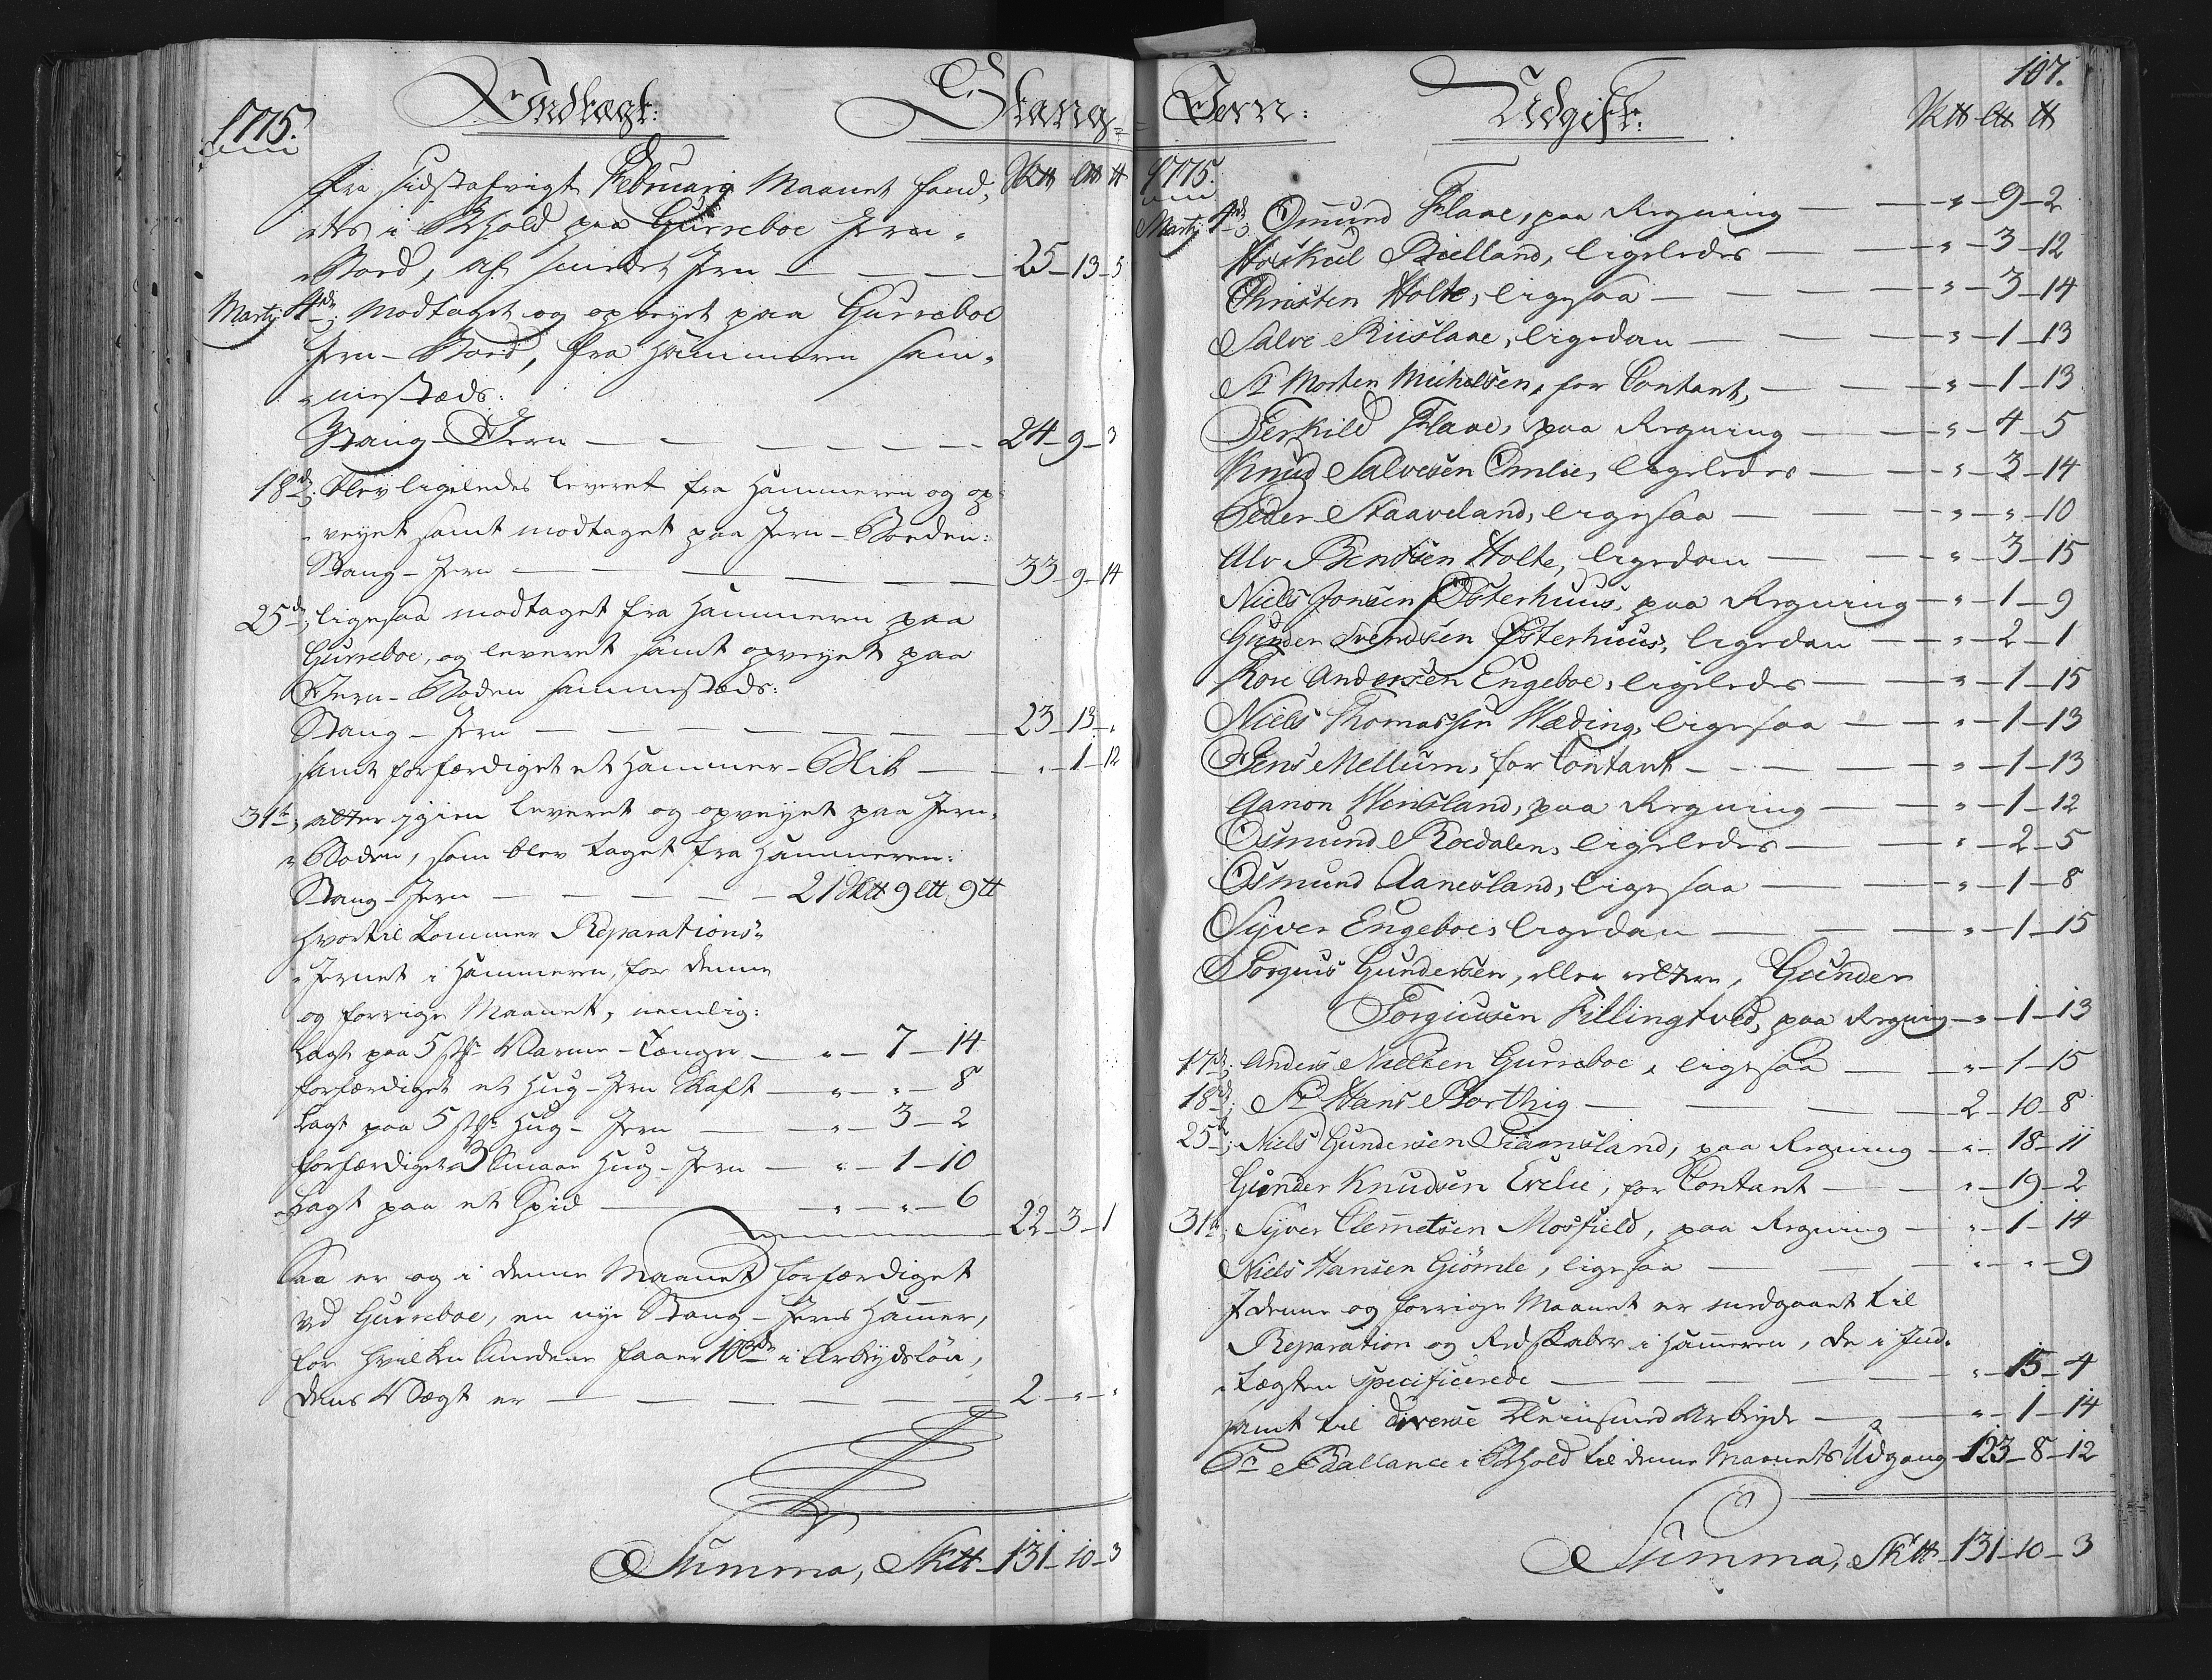 1775.
Indtægt:
Stang-
Fra sidstafvigt Februarij Maanet fand, Sktt Ltt tt
-tes i Behold paa Gurreboe Jern-
-Boed, af smedet Jern 25-13-5
Martij 4de; Modtaget og opveyet paa Gurreboe
Jern-Boed, fra Hammeren sam-
-mestæds:
Stang-Jern 24-9-3
18de; blev ligeledes leveret fra Hammeren og op-
-veyet samt modtaget paa Jern-Boeden:
Stang-Jern 33-9-14
25de; ligesaa modtaget fra Hammeren paa
Gurreboe, og leveret samt opveyet paa
Jern-Boden sammestæds:
Stang-Jern 23-13-"
samt forfærdiget et Hammer-Blik "-1-12
31te; atter igien leveret og opveyet paa Jern-
-Boden, som blev taget fra Hammeren:
Stang-Jern 21 Sktt 9 Ltt 9 tt
hvortil kommer Reparations-
-Jernet i Hammeren, for denne
og forrige Maanet, nemlig:
Lagt paa 5 stkr Varme-Tænger "-7-14
forfærdiget et Hug-Jern Skaft "-"-8
Lagt paa 5 stkr Hug-Jern "-3-2
forfærdiget 3 smaae Hug-Jern "-1-10
Lagt paa et Spid "-"-6
22-3-1
Saa er og i denne Maanet forfærdiget
ved Gurreboe, en nye Stang-Jerns Hamer,
for hvilken Smedene faaer 10 rdr i Arbeydsløn,
dens Vægt er 2-"-"
Summa, Sktt 131-10-3
107.
Jern:
Udgift:
Sktt Ltt tt
1775.
Martij 4de; Omund Flaae, paa Regning "-9-2
Høiskul Bielland, ligeledes "-3-12
Christen Holte, ligesaa "-3-14
Salve Riislaae, ligedan "-1-13
Sr Morten Michelsen, for Contant, "-1-13
Terkild Flaae, paa Regning "-4-5
Knud Salvesen Omlie, ligeledes "-3-14
Peder Staaveland, ligesaa "-"-10
Alv Bentsen Holte, ligedan "-3-15
Niels Jonsen Østerhuus, paa Regning "-1-9
Gunder Svendsen Østerhuus, ligedan "-2-1
Roe Andersen Engeboe, ligeledes "-1-15
Niels Thomassen Wæding, ligesaa "-1-13
Jens Mellum, for Contant "-1-13
Aanon Henesland, paa Regning "-1-12
Osmund Roedalen, ligeledes "-2-5
Osmund Aanesland, ligesaa "-1-8
Syver Engeboe, ligedan "-1-15
Torguus Gundersen, eller rettere, Gunder
Torguusen Fillingtved, paa Regning "-1-13
17de; Anders Nielsen Gurreboe, ligesaa "-1-15
18de; Sr Hans Storthig 2-10-8
25de; Niels Gundersen Tiamsland, paa Regning "-18-11
Gunder Knudsen Evelie, for Contant "-19-2
31te; Syver Clemetsen Mosfield, paa Regning "-1-14
Niels Hansen Giømle, ligesaa "-"-9
I denne og forrige Maanet er medgaaet til
Reparation og Redskaber i Hameren, de i Ind-
-tægten specificerede "-15-4
samt til diverse Kleinsmed Arbeyde "-1-14
Pr Ballance i Behold til denne Maanets Udgang 123-8-12
Summa, Sktt 131-10-3